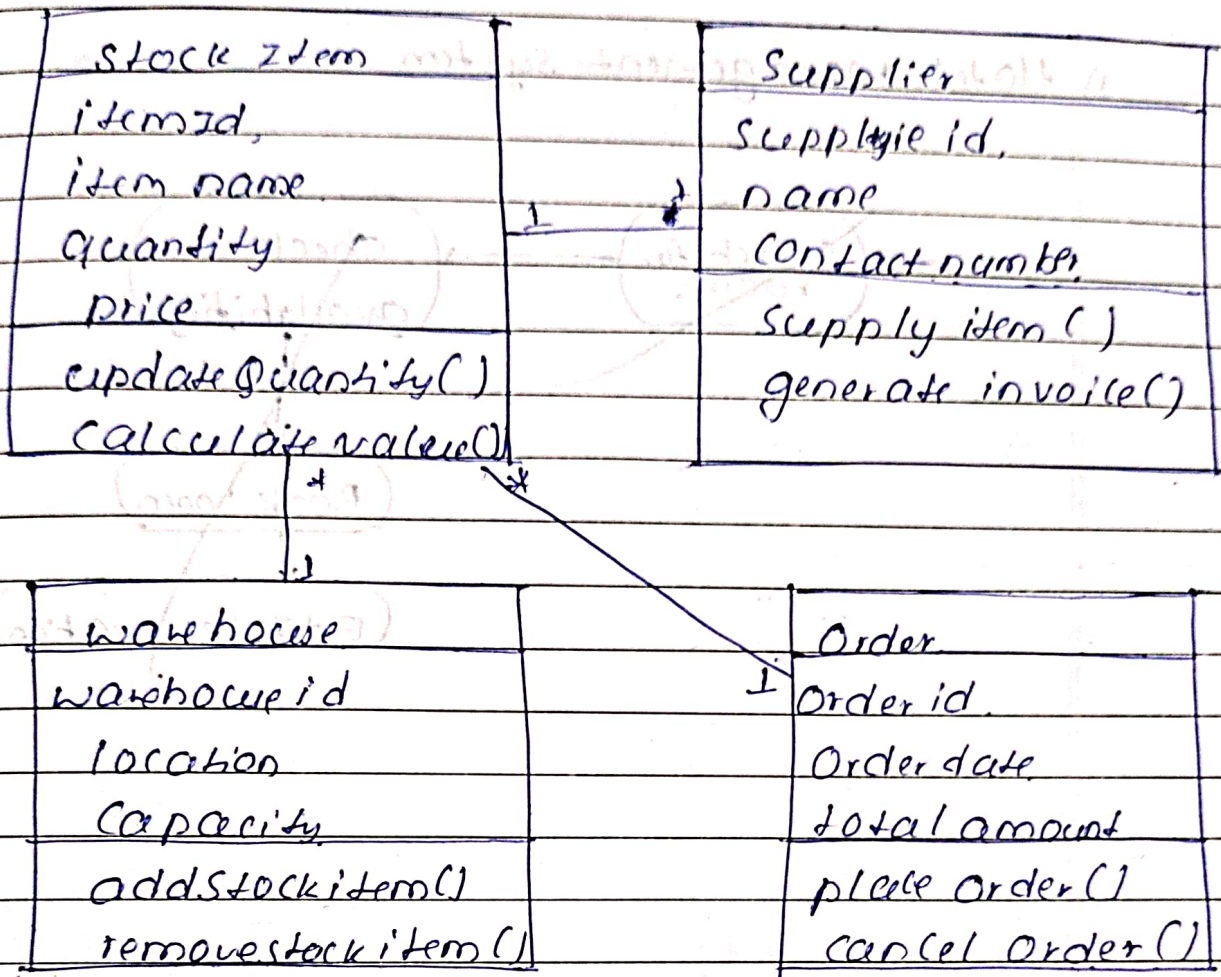 Stock Item
itemId,
item name
quantity
price
updateQuantity()
calculate value()
Supplier
name
contact number
supply item ()
generate invoice()
1
*
1
*
1
warehouse
warehouse id
location
capacity
addstockitem()
removestockitem()
Order
Order id
Order date
total amount
place order()
cancel order()